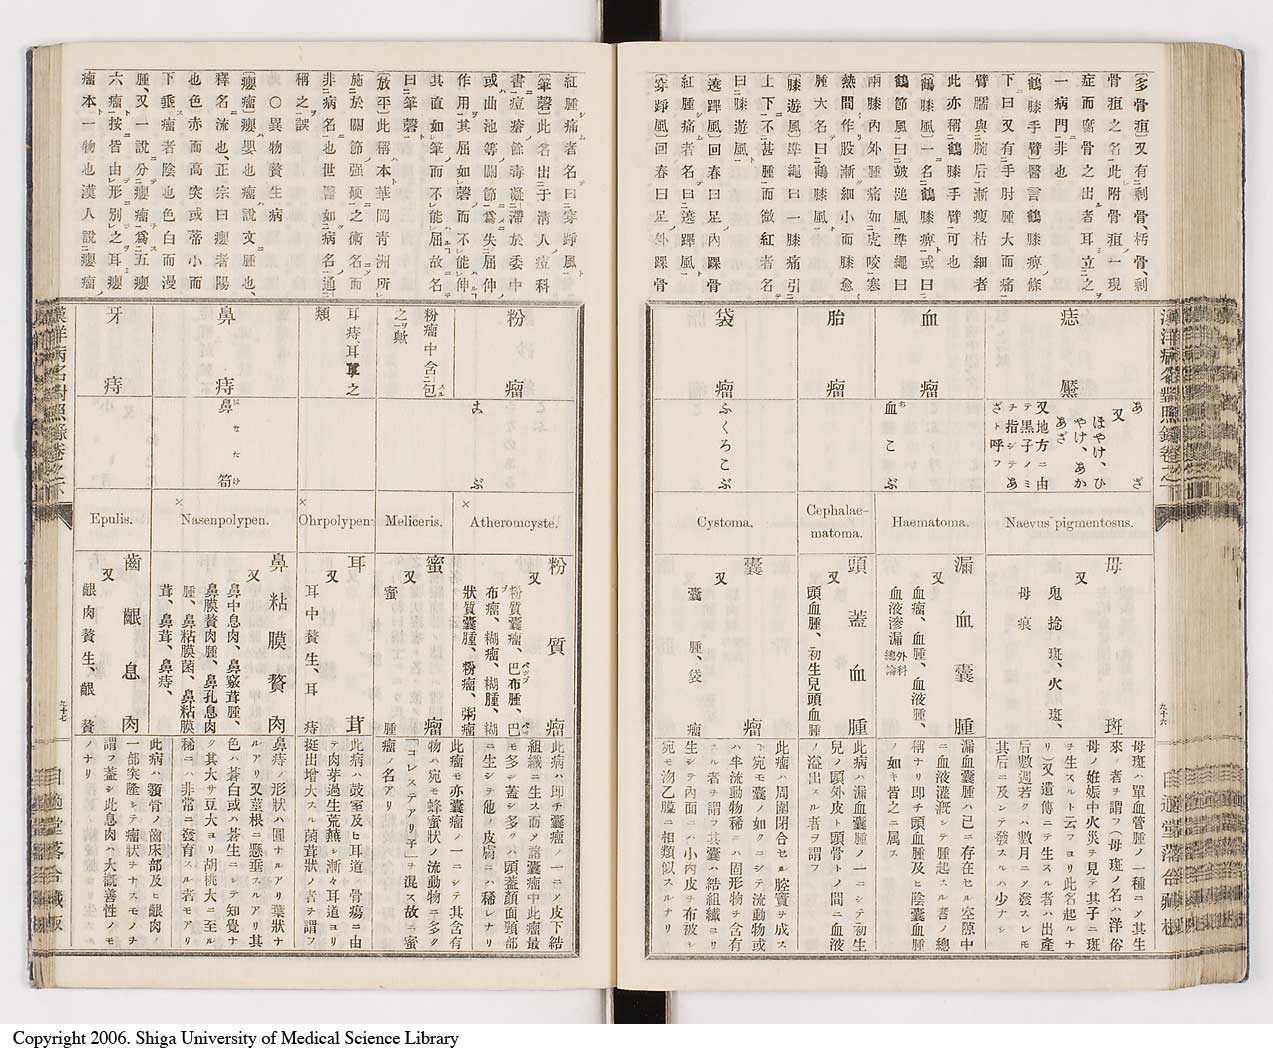 (多骨疽)又有剩骨、朽骨、剩
骨疽之名此附骨疽一現
症而腐骨之出者耳立之
一病門非也
(鶴膝手臂)醫言鶴膝痹條
下曰又有手肘腫大而痛
臂臑與腕后漸瘦枯細者
此亦稱鶴膝手臂可也
(鶴膝風)一名鶴膝痹或曰
鶴節風曰鼓槌風準繩曰
兩膝內外腫痛如虎咬寒
熱間作股漸細小而膝愈
腫大名曰鶴膝風
(膝遊風)準繩曰一膝痛引
上下不甚腫而微紅者名
曰膝遊風
(遶踝風)回春曰足內踝骨
紅腫痛者名曰遶踝風
(穿踭風)回春曰足外踝骨
痣黶
あざ
又 ほやけ、ひ
やけ、あか
あざ
又地方ニ由
テ黒子ノミ
チ指シテあ
ざト呼フ
Naevus pigmentosus.
母斑
又 鬼捻斑、火斑、
母痕
母斑ハ單血管腫ノ一種ニメ其生
來ノ者ヲ謂フ(母斑ノ名ハ洋俗
母ノ姙娠中火災チ見テ其子ニ斑
チ生スルト云フヨリ此名起ルナ
リ)又遺傳ニテ生スル者ハ出產
后數週若クハ數月ニメ發スレモ
其后ニ及シテ發スルハ少ナシ
血瘤
血こぶ
Haematoma.
漏血囊腫
又 血瘤、血腫、血液腫、
血液滲漏 外科總論
漏血囊腫ハ已ニ存在セル空隙中
ニ血液灌漑シテ腫起スル者ノ總
稱ナリ即チ頭血腫及ヒ陰囊血腫
ノ如キ皆之ニ属ス
胎瘤
Cephalae-
matoma.
頭蓋血腫
又 頭血腫、初生兒頭血腫
此病ハ漏血囊腫ノ一ニシテ初生
兒ノ頭外皮ト頭骨トノ間ニ血液
ノ溢出スル者ヲ謂フ
袋瘤
ふくろこぶ
Cystoma.
囊瘤
又 囊腫、袋瘤
此瘤ハ周圍閉合セル腔竇チ成ス
ト宛モ囊ノ如クニシテ流動物或
ハ半流動物稀ニハ固形物チ含有
スル者ヲ謂フ其囊ハ結組織ヨリ
生シテ內面ニハ小內皮チ布被シ
宛モ沕乙膜ニ相類似スルナリ
九十六
紅腫痛者名曰穿踭風
(筆磬)此名出于清人痘科
書痘瘡餘毒凝滯於委中
或曲池等關節為失屈伸
作用其屈如磬而不能伸
其直如筆而不能屈故名
曰筆磬
(放平)此稱本華岡青洲所
施於關節强硬之術名而
非病名也世醫如病名通
稱之誤
○異物贅生病
(癭瘤)癭嬰也瘤說文腫也、
釋名流也、正宗曰癭者陽
也色赤而高突或蒂小而
下垂瘤者陰也色白而漫
腫、又一說分癭瘤為五癭
六瘤按皆由形別之耳癭
瘤本一物也漢人說癭瘤
粉瘤
あぶ
Atheromcyste.
粉質瘤
又 粉質囊瘤、巴布腫、巴
布瘤、糊瘤、糊腫、糊
狀質囊腫、粉瘤、粥瘤
此病ハ即チ囊瘤ノ一ニメ皮下結
組織ニ生ス而メ諸囊瘤中此瘤最
モ多シ蓋シ多クハ頭蓋顔面頸部
ニ生シテ他ノ皮膚ニハ稀レナリ
粉瘤中含包
之ヲ歟
Meliceris.
蜜瘤
又 蜜腫
此瘤モ亦囊瘤ノ一ニシテ其含有
物ハ宛モ蜂蜜狀ノ流動物ニ多ク
「コレステアリ子」ヲ混ス故ニ蜜
瘤ノ名アリ
耳痔耳蕈之
類
Ohrpolypen.
耳茸
又 耳中贅生、耳痔
此病ハ鼓室及ヒ耳道ノ骨瘍ニ由
テ肉芽過生荒蕪シ漸々耳道ヨリ
挺出增大スル菌茸狀ノ者ヲ謂フ
鼻痔
鼻笥
はなたけ
Nasenpolypen.
鼻粘膜贅肉
又 鼻中息肉、鼻竅茸腫、
鼻膜贅肉腫、鼻孔息肉
腫、鼻粘膜菌、鼻粘膜
茸、鼻茸、鼻痔、
鼻痔ノ形狀ハ圓ナルアリ葉狀ナ
ルアリ又莖根ニ懸垂スルアリ其
色ハ蒼白或ハ蒼生ニシテ知覺ナ
ク其大サ豆大ヨリ胡桃大ニ至ル
稀ニハ非常ニ發育スル者モアリ
牙痔
Epulis.
齒齦息肉
又 齦肉贅生、齦贅
此病ハ顎骨ノ齒床部及ヒ齦肉ノ
一部突隆シテ瘤狀チナスモノチ
謂フ蓋シ此息肉ハ大概善性ノモ
ノナリ
九十七
Copyright 2006. Shiga University of Medical Science Library